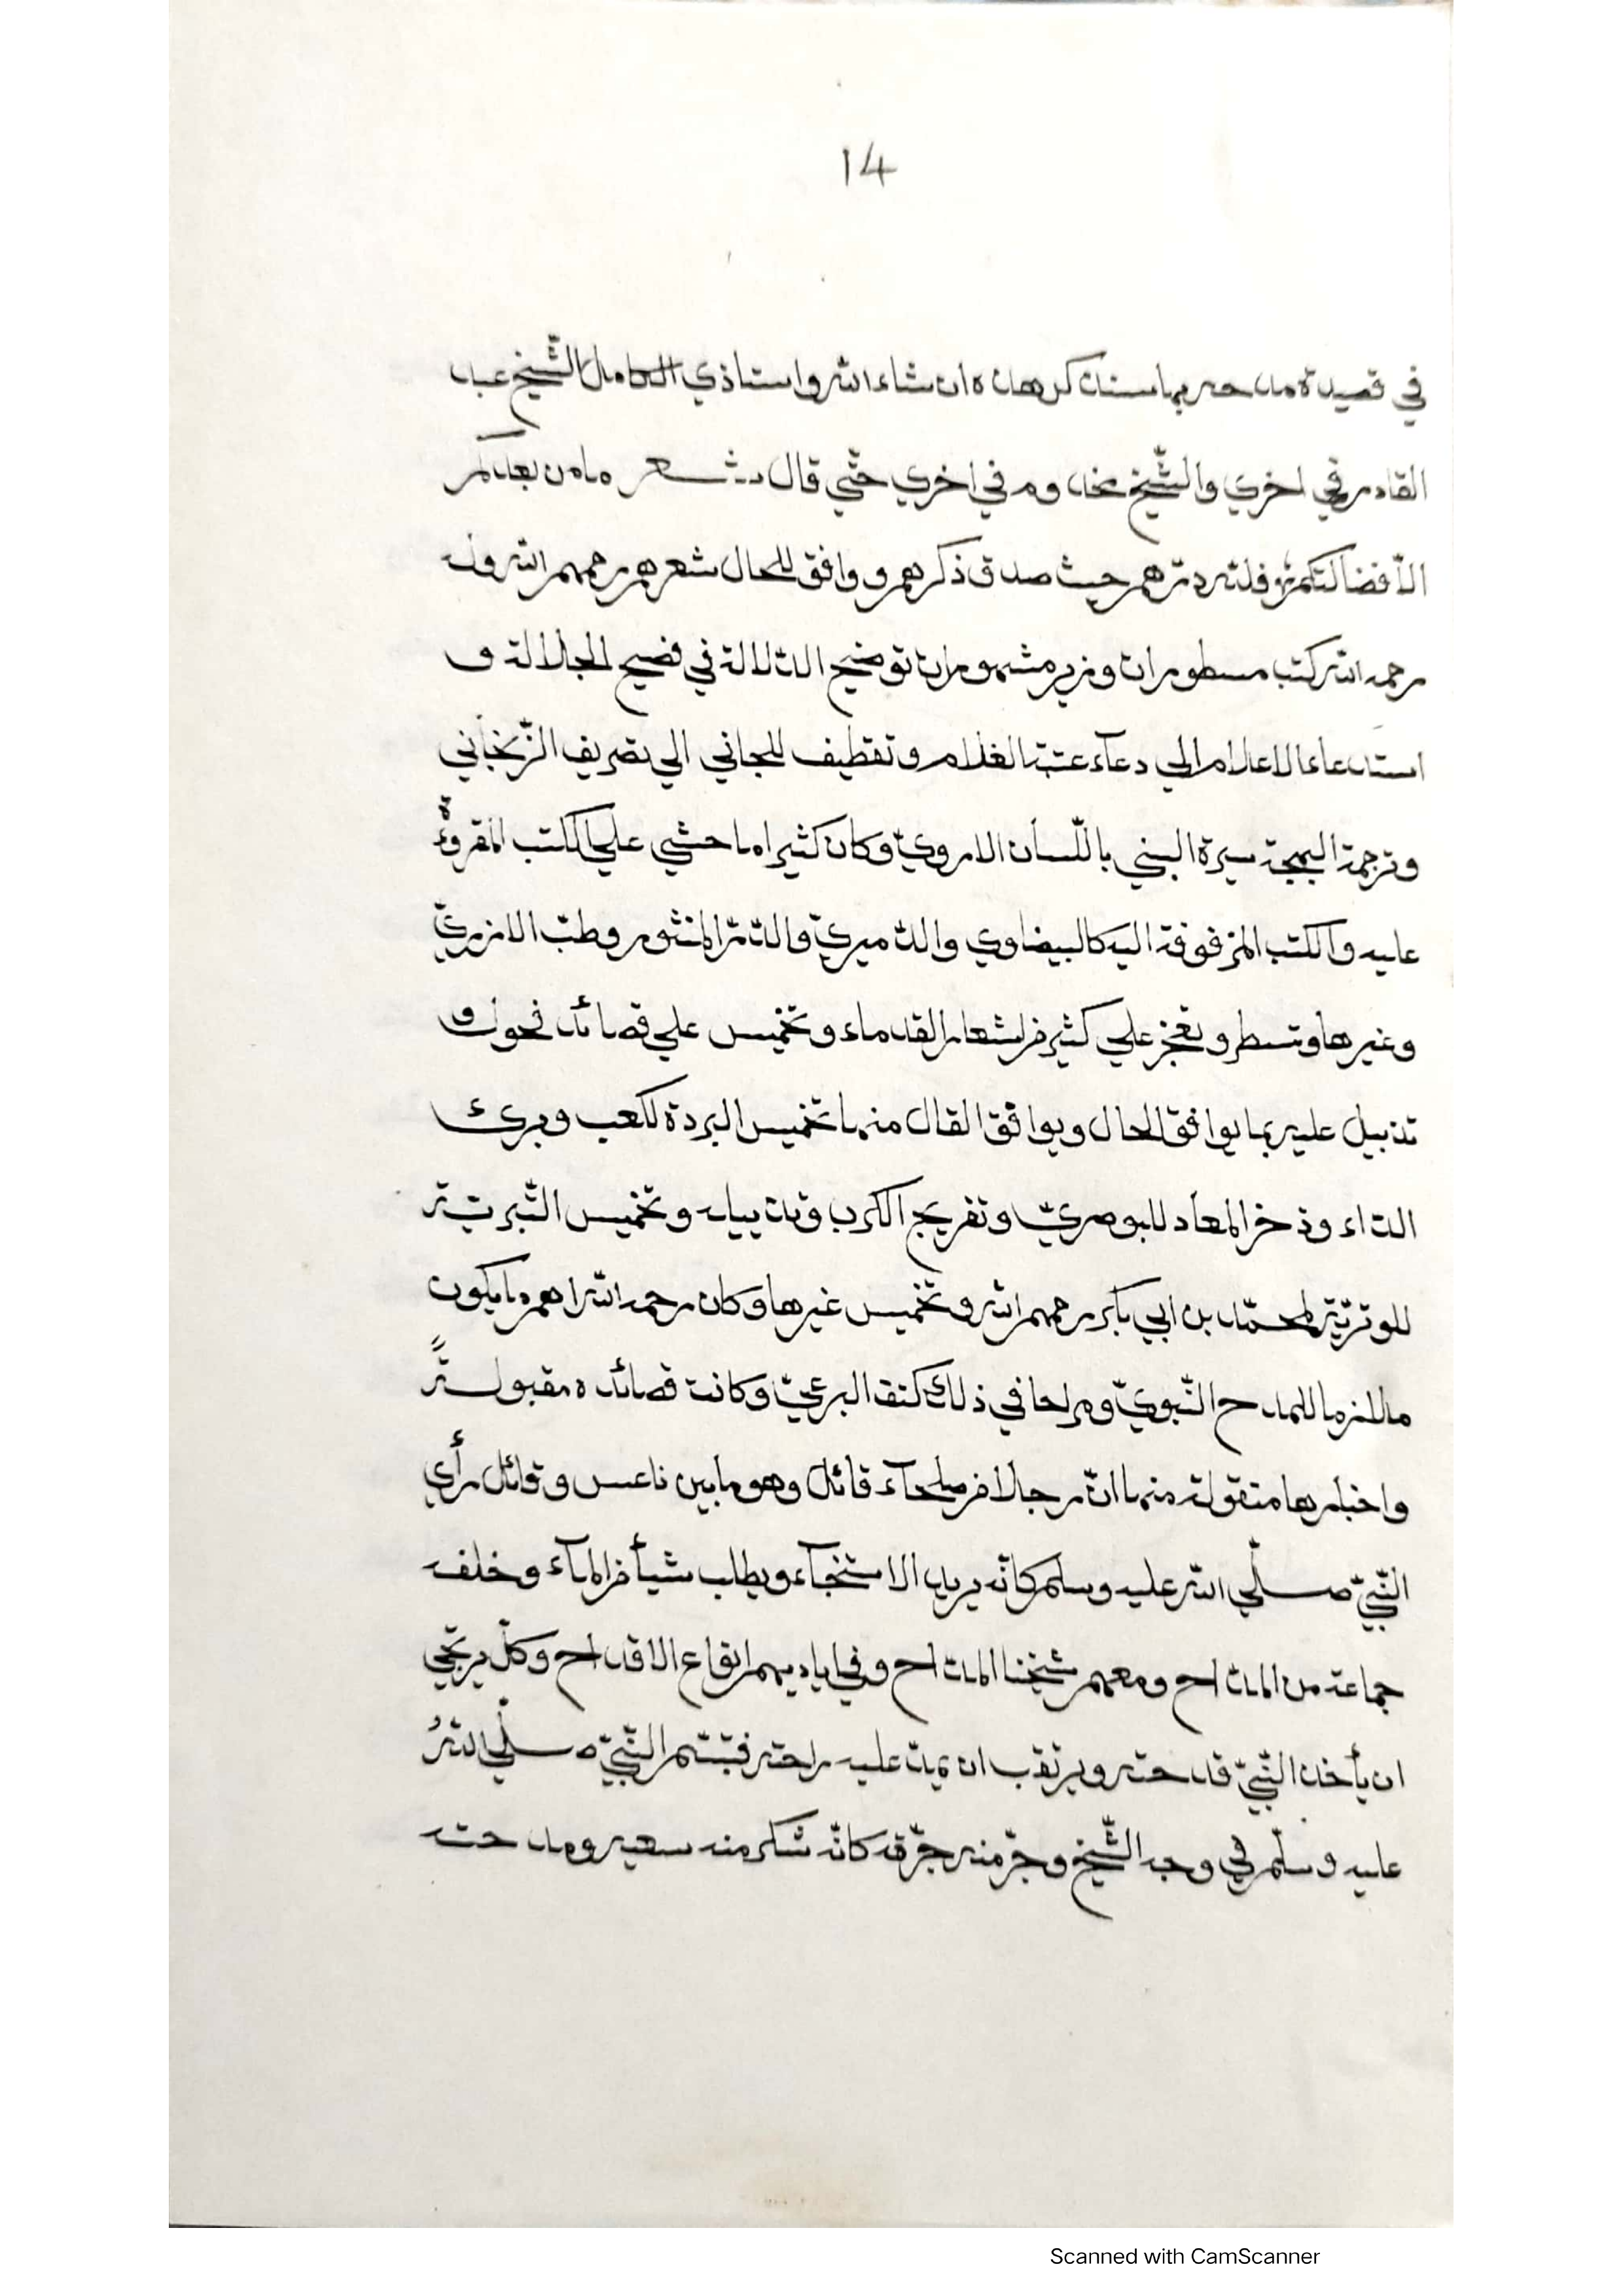 14
في قصيدة مدحه بها سنذكرها ان شاء الله واستاذي الكامل الشيخ عبد
القادر في اخري والشيخ مخدوم في اخري حتّي قال شعر ما من بعدكم
الأفضالكم فلله درّهم حيث صدق ذكرهم ووافق للحال شعرهم رحمهم الله وله
رحمه الله كتب مسطورات وزبر مشهورات توضيح الدّلالة في فضيح الجلالة و
استدعاء الاعلام الي دعآء عتبة الغلام وتقطيف للجاني الي تصريف الزّنجاني
وترجمة البهجة سيرة النبي باللّسان الارويّ وكان كثيرا ما حشي علي الكتب المقروءة
عليه والكتب المزفوفة اليه كالبيضاوي والدّميريّ والدّرّ المنثور وطبّ الازريّ
وغيرها وتسطر وتعجز علي كثير من اشعار القدماء وتخميس علي قصائد فحول و
تذييل عليه بما يوافق الحال ويوافق القال منها تخميس البردة للكعب وبرئ
الدّاء وذخر المعاد للبوصريّ وتفريج الكرب وتذييله وتخميس التّبريّة
للوتريّة لمحمّد بن ابي بكر رحمهم الله وتخميس غيرها وكان رحمه الله اهم ما يكون
ملازما للمدح النّبويّ ومراحا في ذلك كتف البرعيّ وكانت قصائده مقبولةً
واخبارها منقولة منها انّ رجلا من صلحآء قائل وهو ما بين ناعس وقائل رأي
النّبيّ صلّي الله عليه وسلم كانّه يريد الاستنجآء ويطلب شيأ من المآء وخلفه
جماعة من المدّاح ومعهم شيخنا المدّاح وفي اياديهم انواع الاقداح وكلّ يرتجي
ان يأخذ النّبيّ قدحه ويرتقب ان يمدّ عليه راحته فتبسّم النّبيّ صلّي اللهُ
عليه وسلّم في وجه الشّيخ وجرّ منه جرّة كانّه شكر منه سعيه ومدحته
Scanned with CamScanner